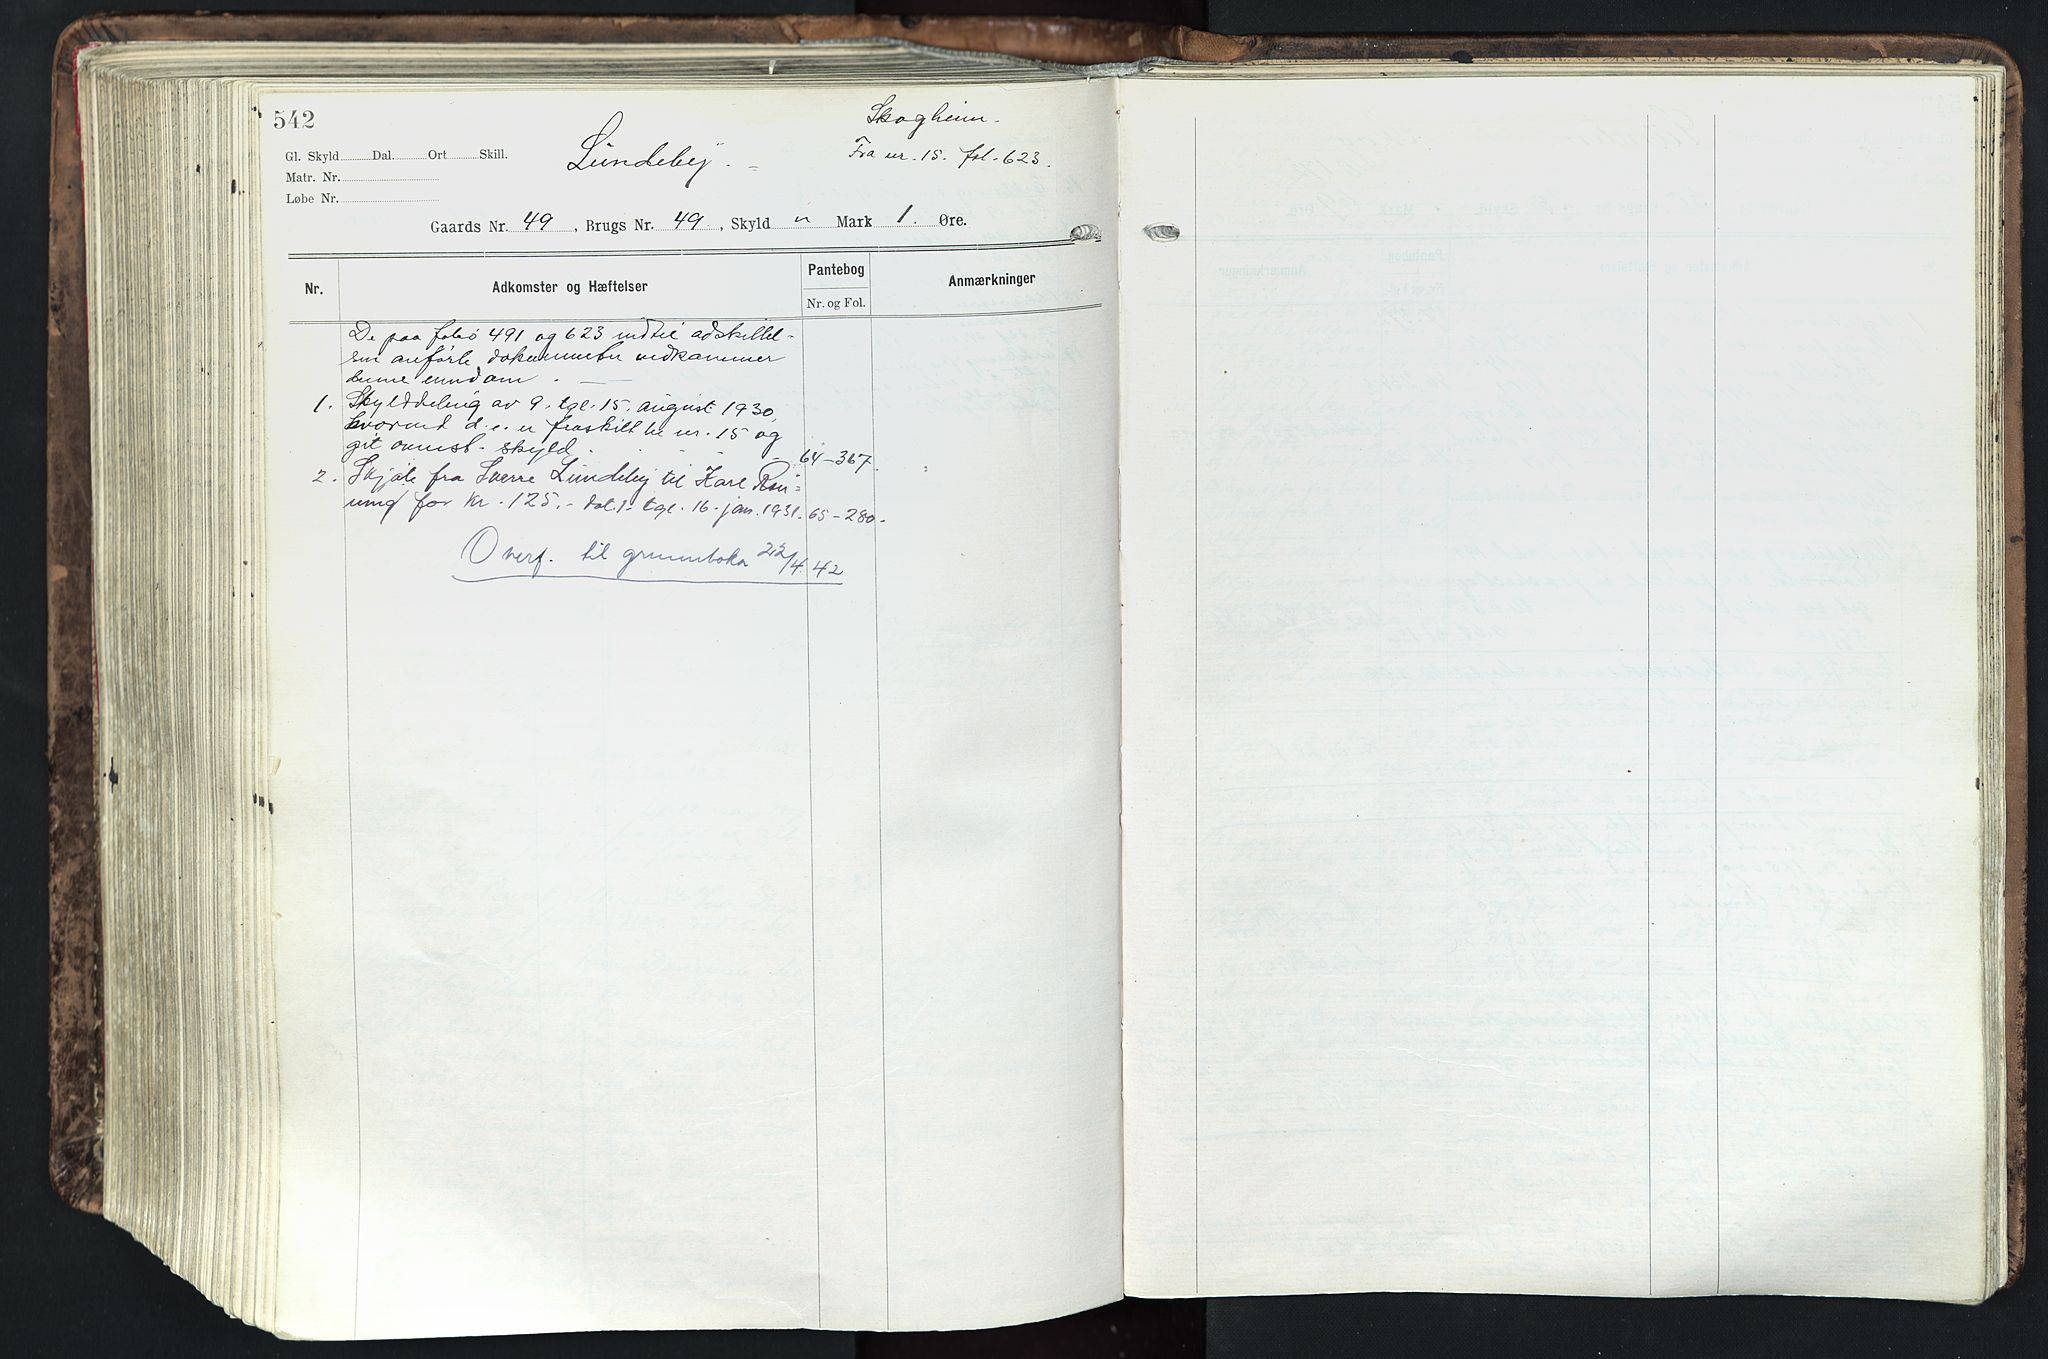 542
Skogheim.
Gl. Skyld Dal. Ort Skill.
Lundeby.
Fra nr. 15. fol. 623.
Matr. Nr.
Løbe Nr.
Gaards Nr. 49, Brugs Nr. 49, Skyld " Mark 1. Øre.
Nr. Adkomster og Hæftelser Pantebog Anmærkninger
Nr. og Fol.
De paa folio 491 og 623 indtil adskillel-
sen anførte dokumenter vedkommer
denne eiendom.
1. Skylddeling av 9. tgl. 15. august 1930,
hvorved d. e. er fraskilt br. nr. 15 og
git ovennt. skyld. 64-367.
2. Skjøte fra Sverre Lundeby til Karl
for kr. 125.- dat. 1. tgl. 16. jan. 1931. 65-280.
Overf. til grunnboka 22/4.42